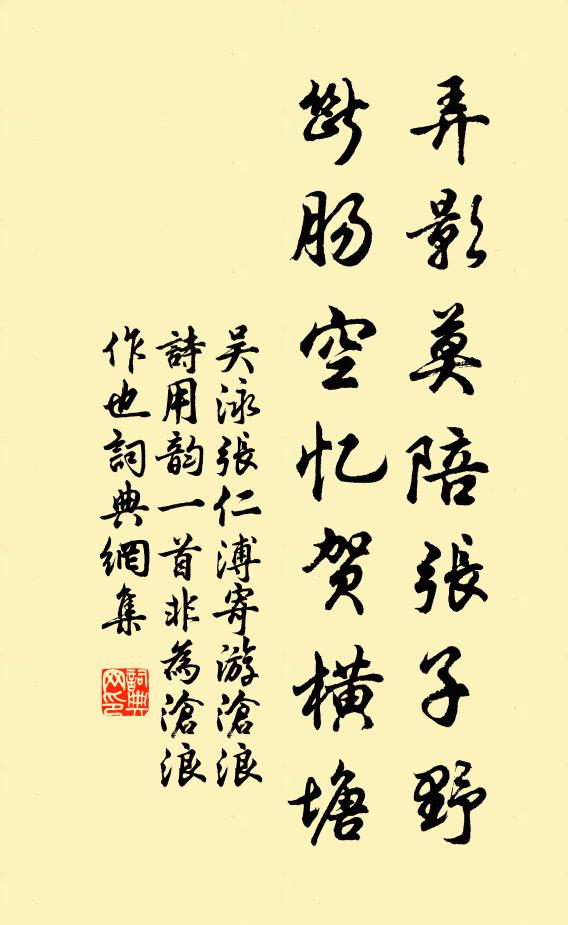 弄影莫陪張子野
斷肠空忆贺横塘
吴泳張仁溥寄游滄浪
詩用韵一首非為滄浪
作也詞典網集
詞典
网印